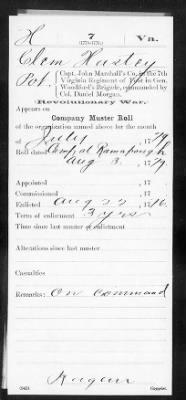 H 7 Va.
(1776-1778.)
Clem Hasty
Pvt, Capt. John Marshall's Co. in the 7th
Virginia Regiment of Foot in Gen.
Woodford's Brigade, commanded by
Col. Daniel Morgan.
Revolutionary War.
Appears on
Company Muster Roll
of the organization named above for the month
of July, 1779.
Roll dated Camp at Ramapough
Aug 3, 1779.
Appointed , 17
Commissioned , 17
Enlisted Aug 22, 1776.
Term of enlistment 3 yrs
Time since last muster or enlistment
Alterations since last muster
Casualties
Remarks: On Command
Ragan
Copyist.